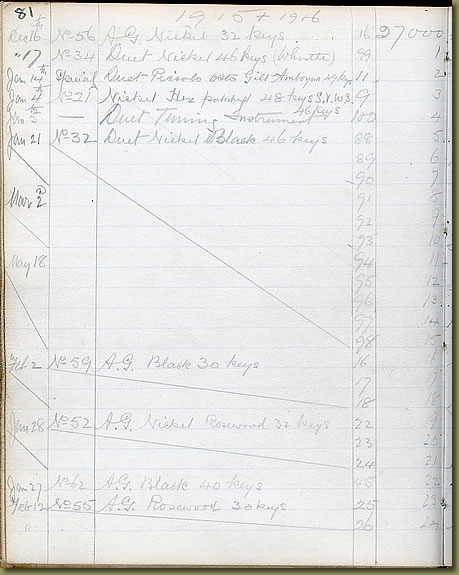 81 1915 + 1916
Dec 16th No 56 A.G. Nickel 32 keys. 16 27000
" 17 No 34 Duet Nickel 46 keys 99 1
Jan 14th Special Duet Piccolo Gilt Amboyna 49 keys 11 2
Jan 4th No 21A Nickel Hex 48 keys S.V.W.S. 9 3
Jan 3rd — Duet Tuning Instrument 46 keys 100 4
Jan 21 No 32 Duet Nickel Black 46 keys 88 5
89 6
90 7
Mar 2nd 91 8
92 9
93 10
May 18 94 11
95 12
96 13
97 14
98 15
Feb 2 No 59 A.G. Black 30 keys 16
17
18
Jan 28 No 52 A.G. Nickel Rosewood 32 keys 22 19
23 20
24 21
Jan 27 No 62 A.G. Black 40 keys 45 22
Feb 12 No 55 A.G. Rosewood 30 keys 25 23
" 26 24